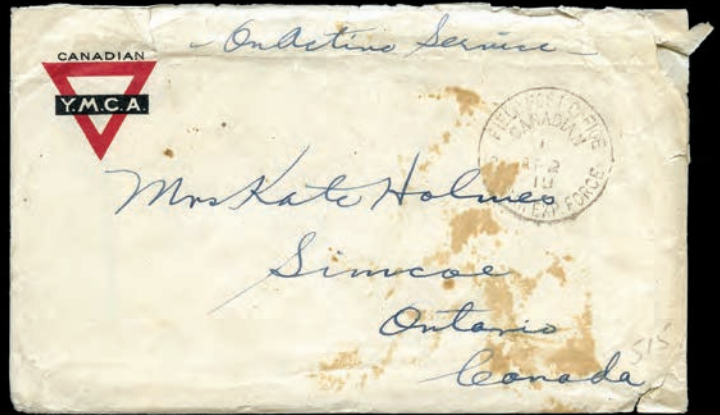 - On Active Service -
CANADIAN
Y.M.C.A.
FIELD POST OFFICE
CANADIAN
1
2
19
EXP. FORCE
Mrs Kate Holmes
Simcoe
Ontario
Canada
515